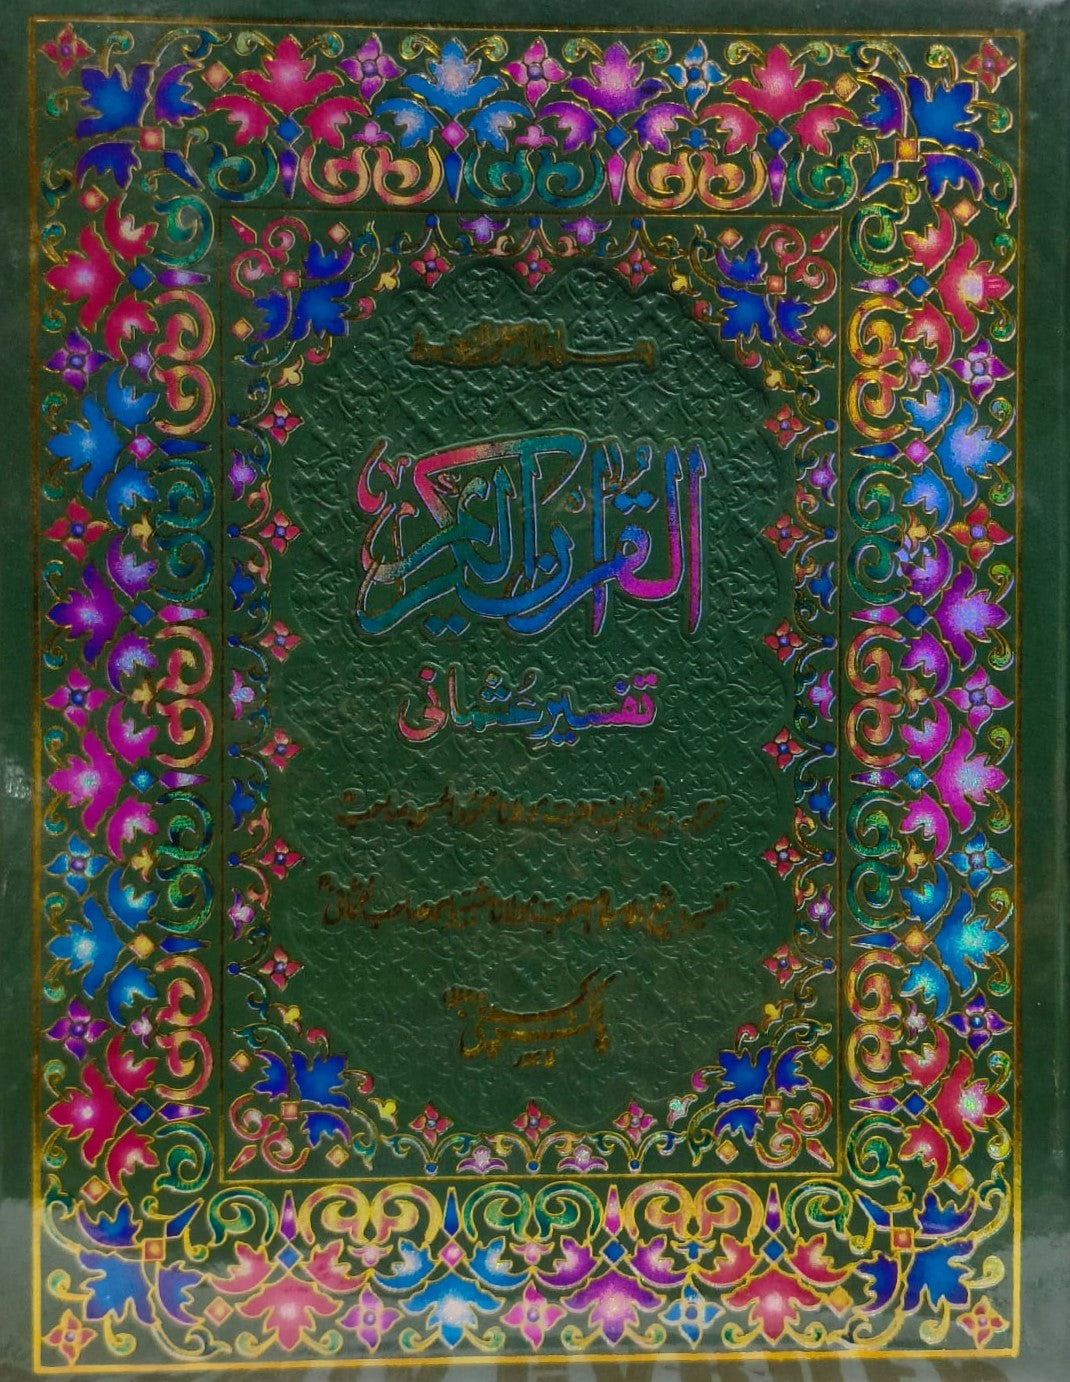 بسم اللہ الرحمن الرحیم
القرآن الکریم
تفسیرِ عُثمانی
ترجمہ : شیخ الہند حضرت مولانا محمود الحسن صاحبؒ
تفسیر : شیخ الاسلام حضرت مولانا شبیر احمد صاحب عثمانیؒ
پاک کمپنی
لاہور